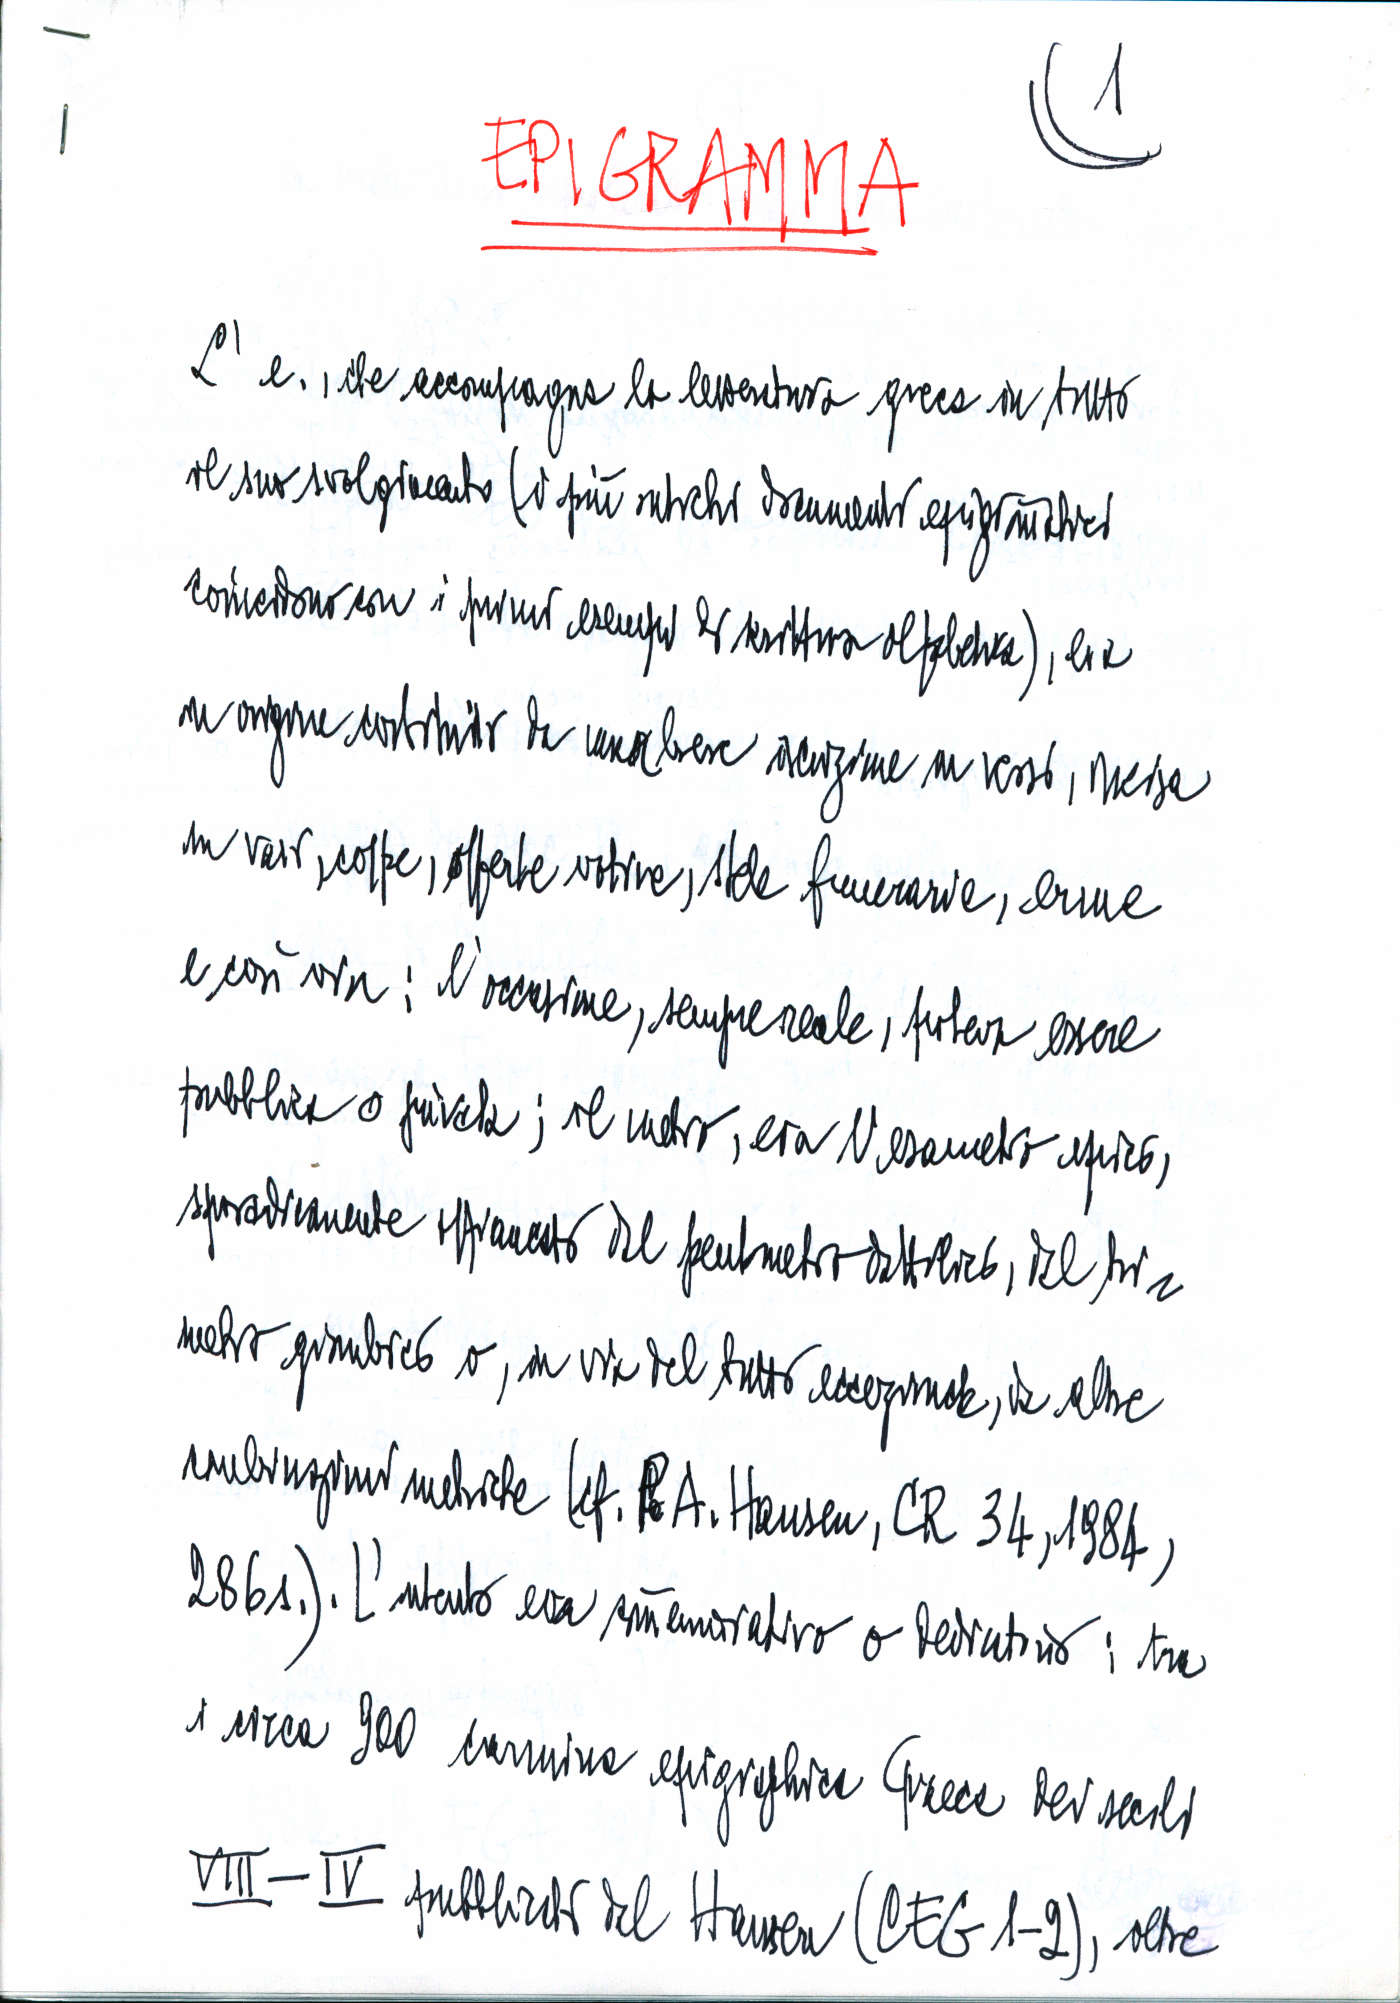 1
EPIGRAMMA
L' e., che accompagna la letteratura greca in tutto
il suo svolgimento (i più antichi documenti epigrammatici
coincidono con i primi esempi di scrittura alfabetica), era
in origine costituito da una breve iscrizione in versi, incisa
su vasi, coppe, offerte votive, stele funerarie, erme
e così via: l'occasione, sempre reale, poteva essere
pubblica o privata; il metro, era l'esametro epico,
sporadicamente affiancato dal pentametro dattilico, dal tri-
metro giambico o, in via del tutto eccezionale, da altre
combinazioni metriche (cf. P. A. Hansen, CR 34, 1984,
286s.). L'intento era commemorativo o dedicatorio: tra
i circa 900 carmina epigraphica Graeca dei secoli
VIII-IV pubblicati dal Hansen (CEG 1-2), oltre